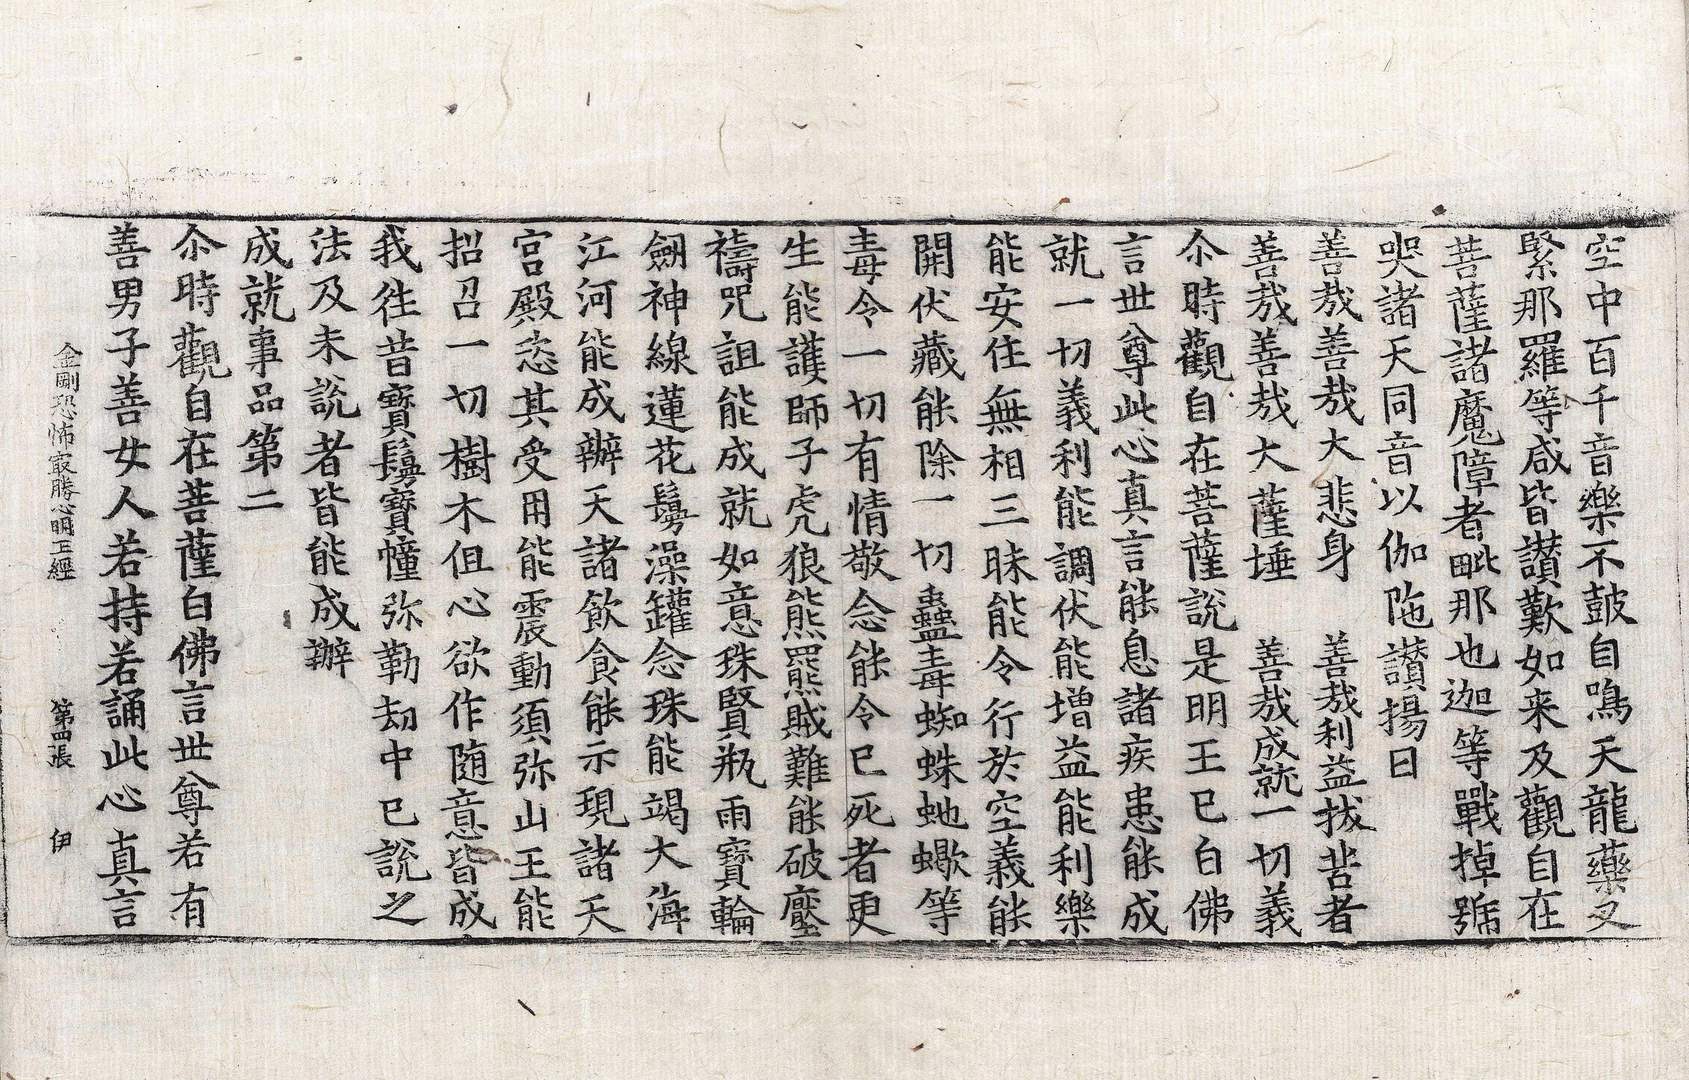 空中百千音樂不鼓自鳴天龍藥叉
緊那羅等咸皆讃歎如来及觀自在
菩薩諸魔障者毗那也迦等戰掉號
哭諸天同音以伽陁讃揚曰
善㢤善㢤大悲身　善㢤利益拔苦者
善㢤善㢤大薩埵　善㢤成就一切義
尒時觀自在菩薩說是明王已白佛
言世尊此心真言能息諸疾患能成
就一切義利能調伏能增益能利樂
能安住無相三昧能令行於空義能
開伏藏能除一切蠱毒蜘蛛虵蠍等
毒令一切有情敬念能令已死者更
生能護師子虎狼熊羆賊難能破壓
禱咒詛能成就如意珠賢瓶雨寶輪
劒神線蓮花鬘澡鑵念珠能竭大海
江河能成辦天諸飲食能示現諸天
宮殿恣其受用能震動須弥山王能
招召一切樹木但心欲作隨意皆成
我往昔寶鬘寶幢弥勒刧中已說之
法及未說者皆能成辦
成就事品第二
尒時觀自在菩薩白佛言世尊若有
善男子善女人若持若誦此心真言
金剛恐怖㝡勝心明王經　第四張　伊